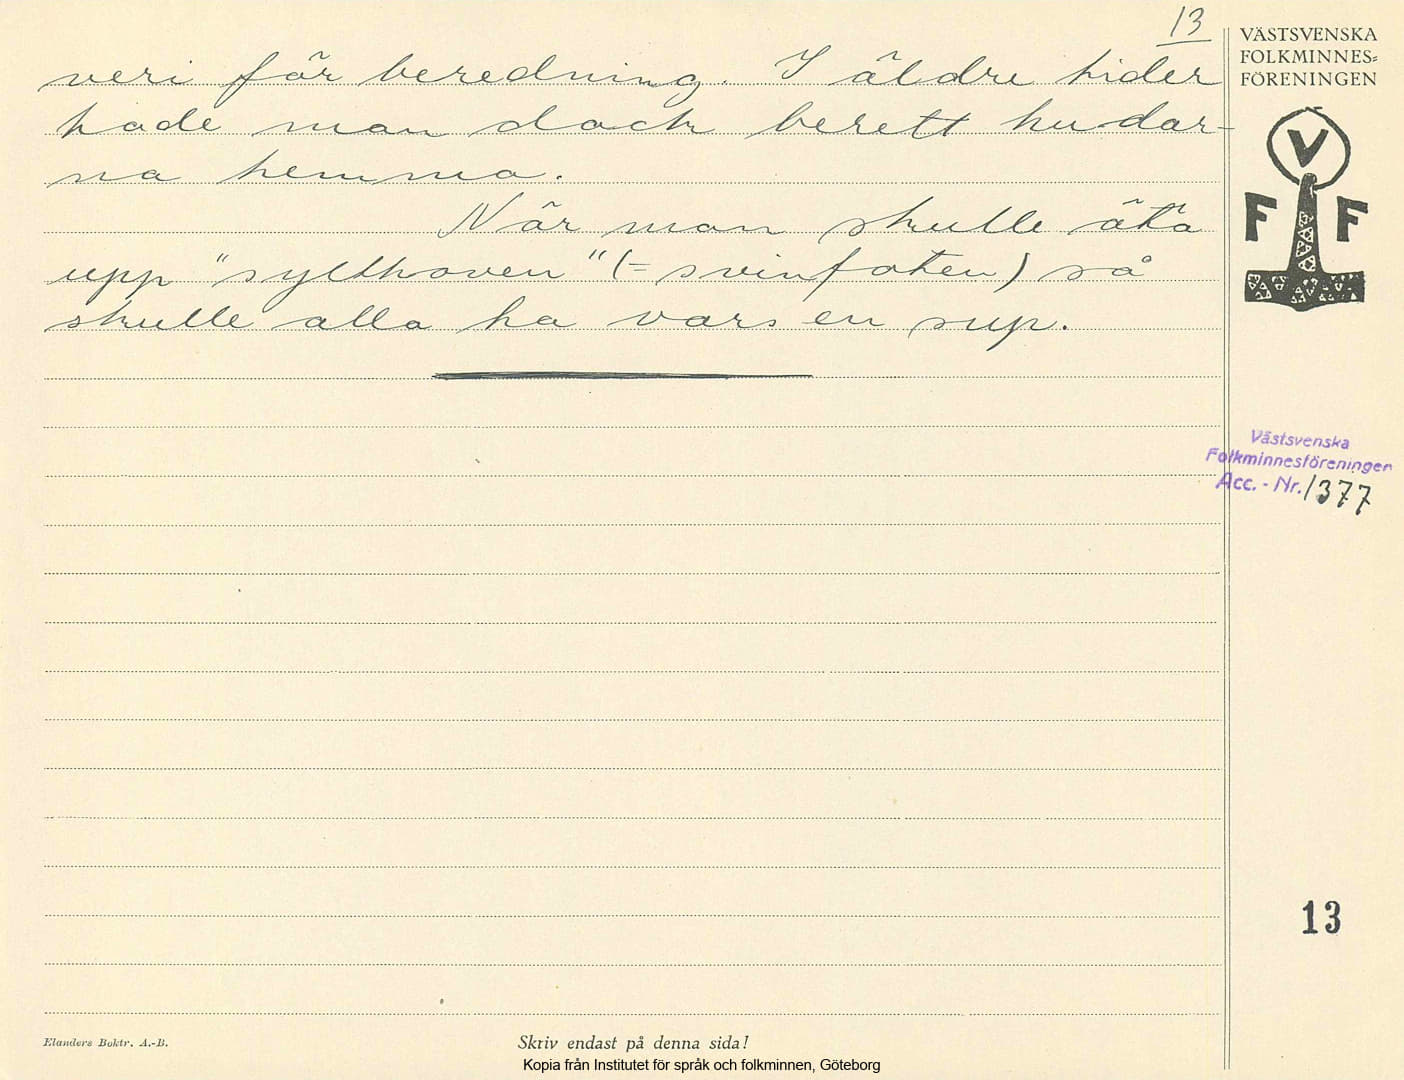 13
veri för beredning. I äldre tider
hade man dock berett hudar-
na hemma.
När man skulle äta
upp "sylthoven" (= svinfoten) så
skulle alla ha vars en sup.
VÄSTSVENSKA
FOLKMINNES=
FÖRENINGEN
V
F F
Västsvenska
Folkminnesföreningen
Acc. - Nr. 1377
13
Elanders Boktr. A.-B.
Skriv endast på denna sida!
Kopia från Institutet för språk och folkminnen, Göteborg